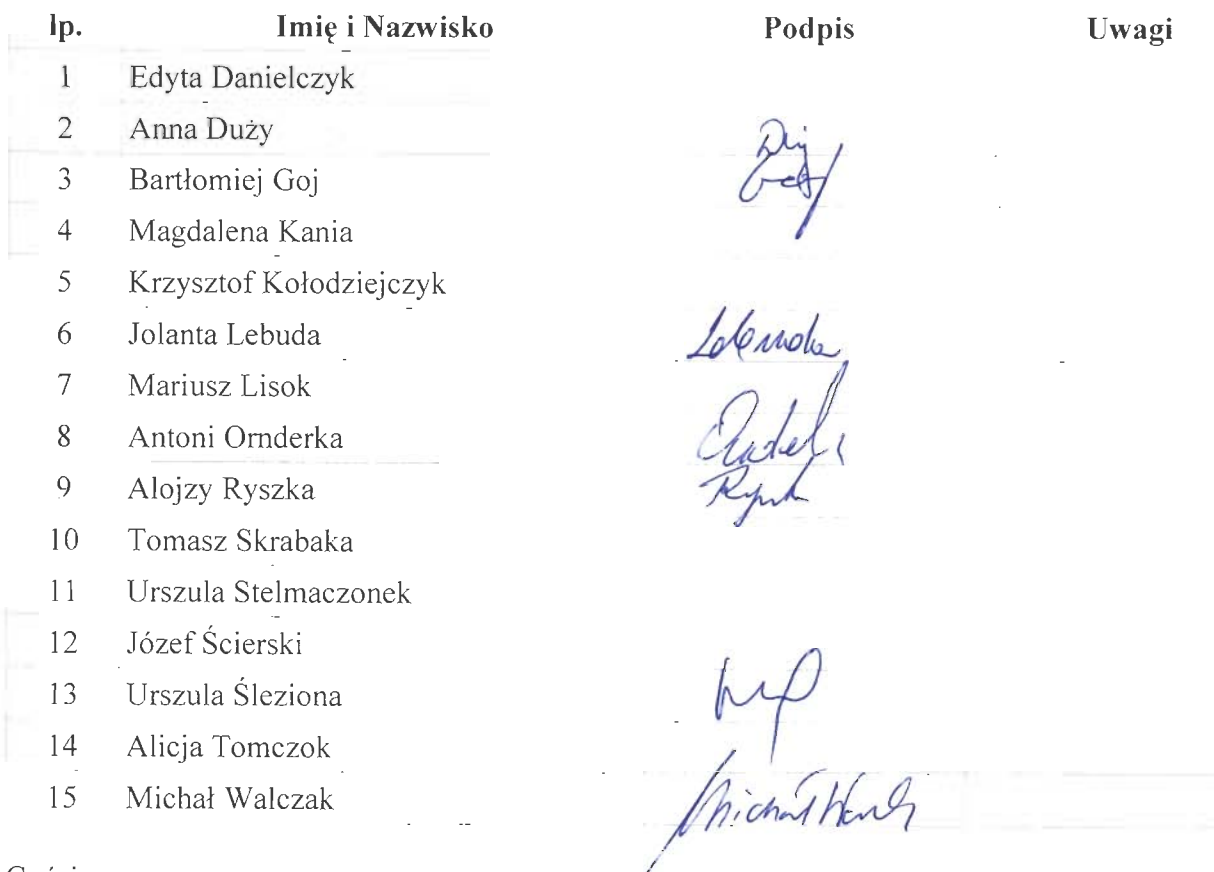 lp. Imię i Nazwisko Podpis Uwagi
1 Edyta Danielczyk
2 Anna Duży
3 Bartłomiej Goj
4 Magdalena Kania
5 Krzysztof Kołodziejczyk
6 Jolanta Lebuda
7 Mariusz Lisok
8 Antoni Ornderka
9 Alojzy Ryszka
10 Tomasz Skrabaka
11 Urszula Stelmaczonek
12 Józef Ścierski
13 Urszula Śleziona
14 Alicja Tomczok
15 Michał Walczak